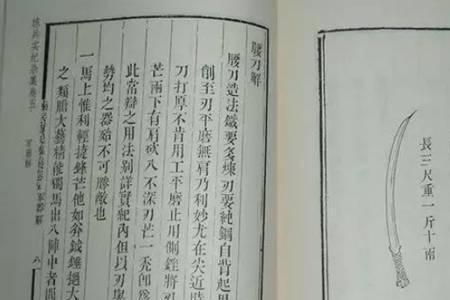 長三尺重一斤十兩
腰刀解
腰刀造法鐵要多煉刃要純鋼自背起用
剷至刃平磨無肩乃利妙尤在尖近時
刀打厚不肯用工平磨止用側銼將刃
芒兩下有肩砍入不深刃芒一禿即
此當辯之用法別詳實紀內但以刃
勢均之器殆不可勝敵也
一馬上惟利輕捷鋒芒他如斧鉞錘撾大
之類膽大藝精能獨馬出入陣中者
練兵實紀雜集卷五
軍器解
八